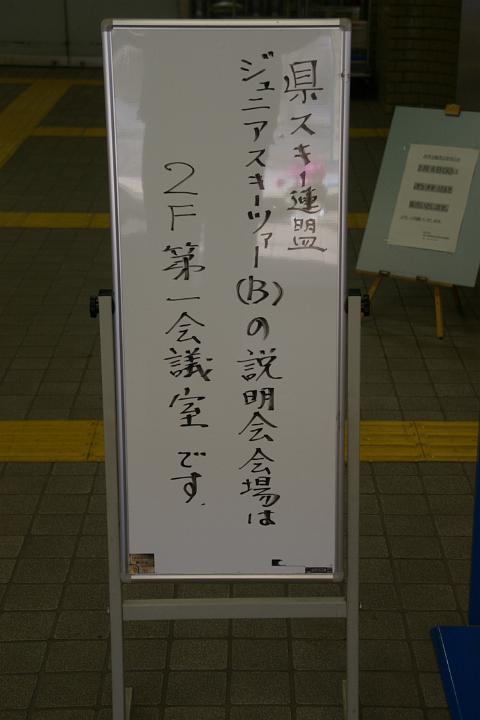 県スキー連盟
ジュニアスキーツァー(B)の説明会会場は
2F第一会議室です.